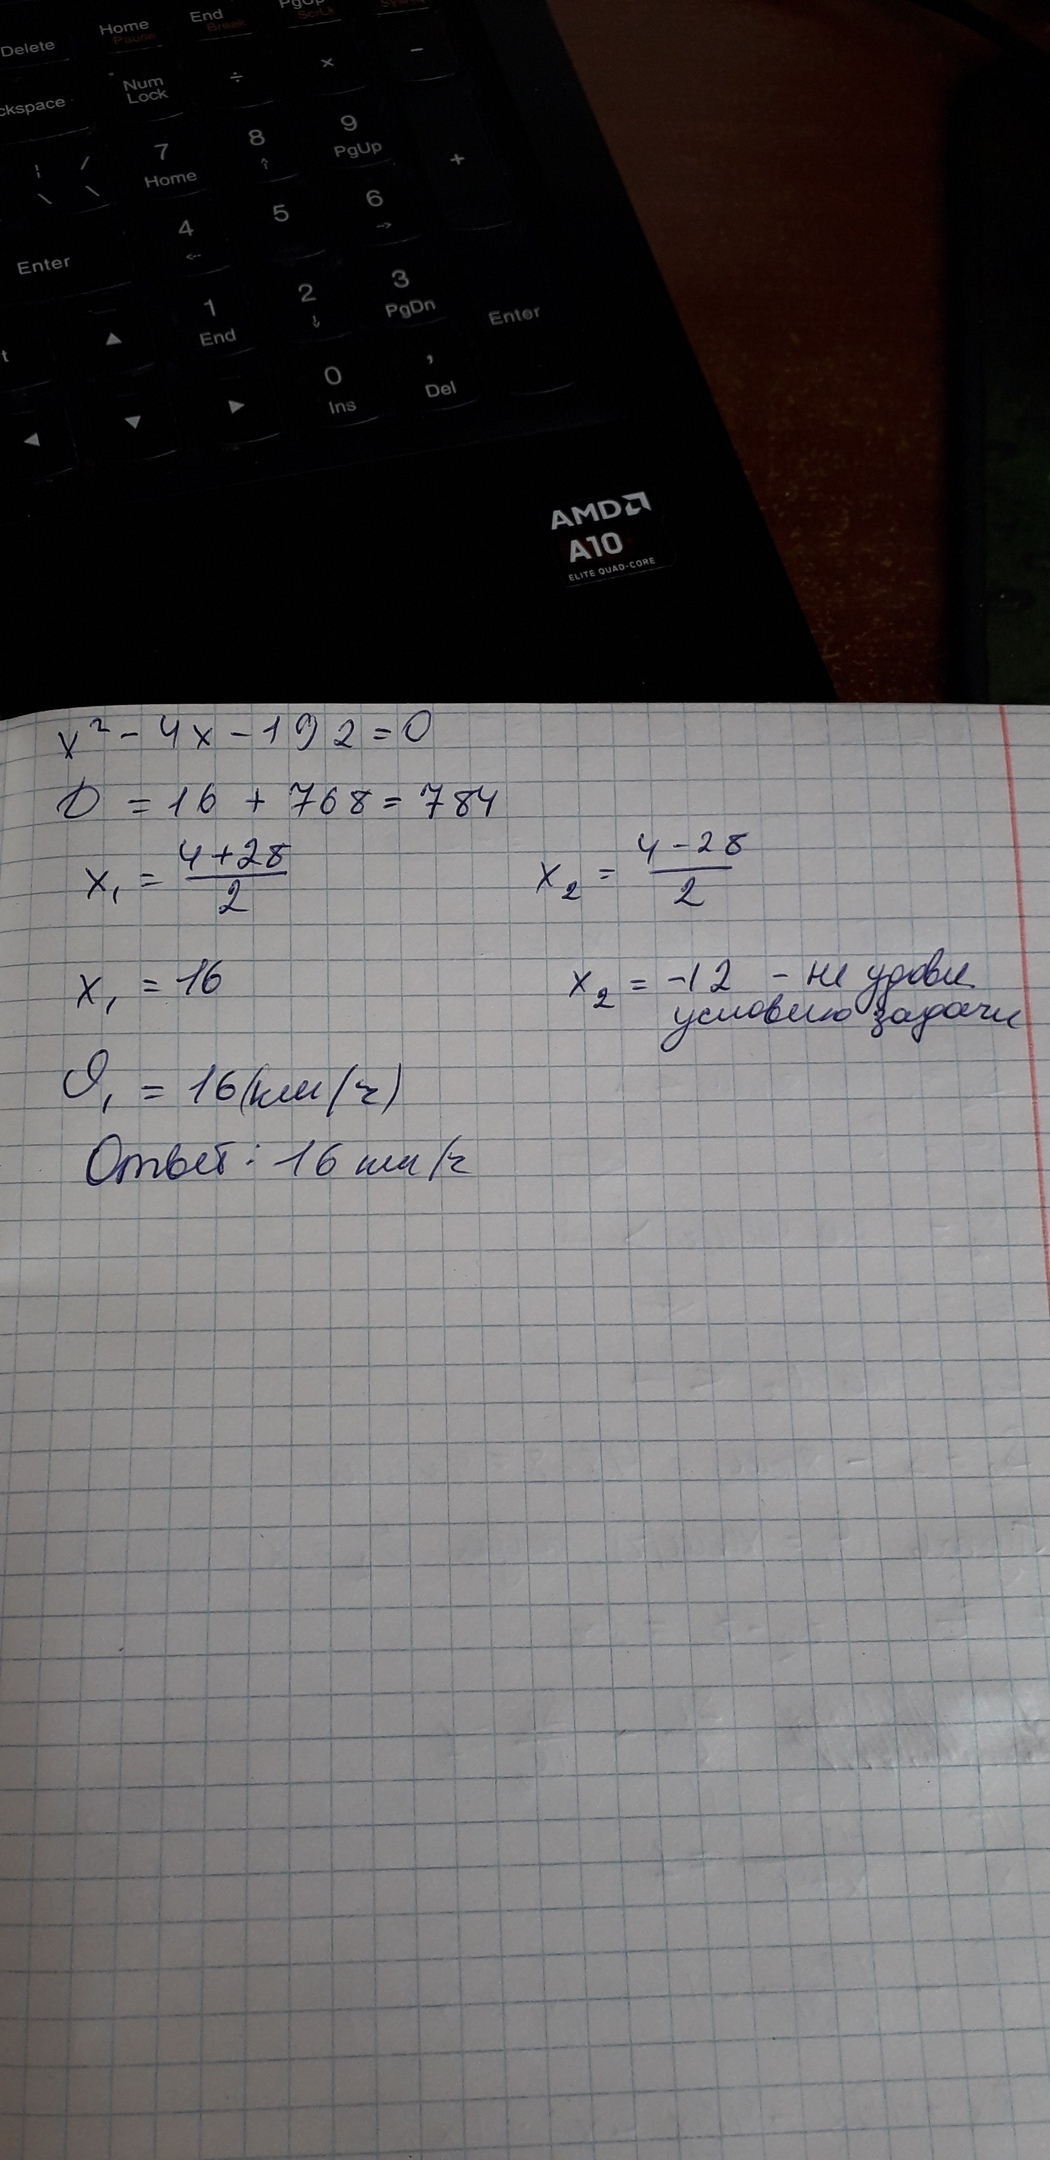 Delete
Home
Pause
End
Break
PgUp
ScrLk
ckspace
Num
Lock
÷
×
−
7
Home
8
↑
9
PgUp
+
¦ /
\ \
4
←
5
6
→
Enter
1
End
2
↓
3
PgDn
Enter
t
▲
0
Ins
,
Del
◀
▼
▶
AMD
A10
ELITE QUAD-CORE
x² - 4x - 192 = 0
D = 16 + 768 = 784
x₁ = (4+28)/2 x₂ = (4-28)/2
x₁ = 16 x₂ = -12 - не удовл.
условию задачи
υ₁ = 16(км/ч)
Ответ: 16 км/ч